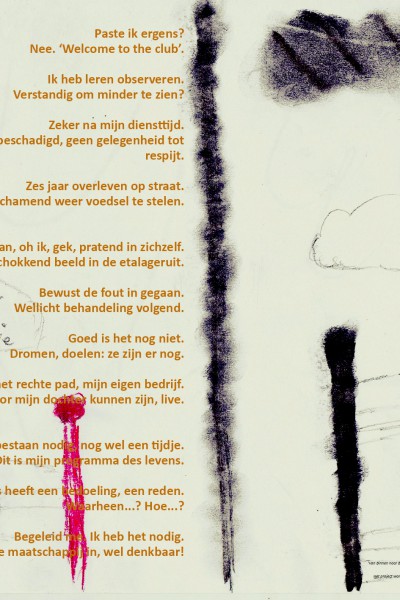 Paste ik ergens?
Nee. ‘Welcome to the club’.
Ik heb leren observeren.
Verstandig om minder te zien?
Zeker na mijn diensttijd.
beschadigd, geen gelegenheid tot
respijt.
Zes jaar overleven op straat.
chamend weer voedsel te stelen.
an, oh ik, gek, pratend in zichzelf.
chokkend beeld in de etalageruit.
Bewust de fout in gegaan.
Wellicht behandeling volgend.
Goed is het nog niet.
Dromen, doelen: ze zijn er nog.
et rechte pad, mijn eigen bedrijf.
or mijn dochter kunnen zijn, live.
bestaan nodig, nog wel een tijdje.
Dit is mijn programma des levens.
s heeft een bedoeling, een reden.
Waarheen...? Hoe...?
Begeleid me. Ik heb het nodig.
e maatschappij in, wel denkbaar!